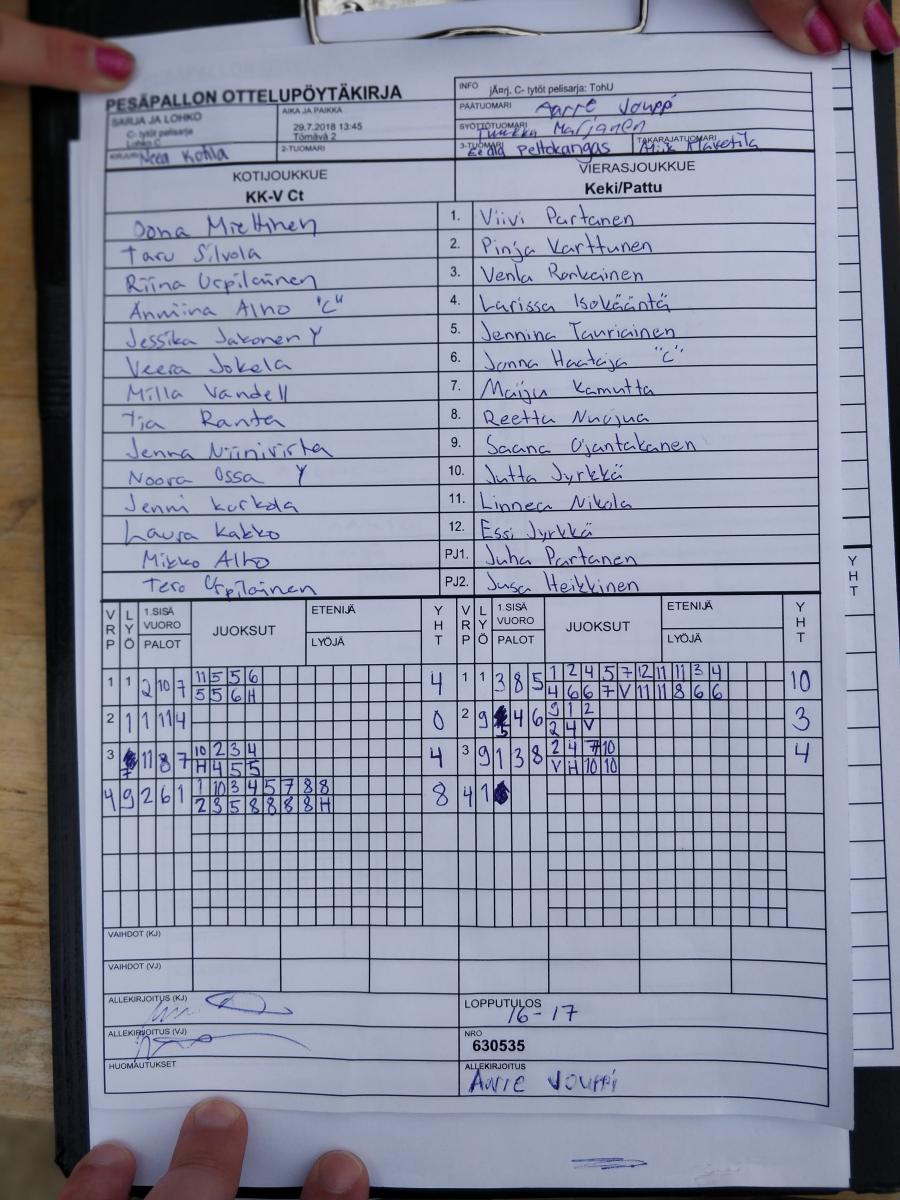 PESÄPALLON OTTELUPÖYTÄKIRJA
INFO jÄ¤rj. C- tytöt pelisarja: TohU
SARJA JA LOHKO
C- tytöt pelisarja
Lohko C
AIKA JA PAIKKA
29.7.2018 13:45
Törnävä 2
PÄÄTUOMARI Aarre Jouppi
SYÖTTÖTUOMARI Marjanen
KIRJURI Neea Kotila
2-TUOMARI
3-TUOMARI Peltokangas
TAKARAJATUOMARI
KOTIJOUKKUE
KK-V Ct
VIERASJOUKKUE
Keki/Pattu
Oona Miettinen 1. Viivi Partanen
Taru Silvola 2. Pinja Karttunen
Riina Urpilainen 3. Venla Ronkainen
Anniina Alho "C" 4. Larissa Isokääntä
Jessika Jakonen Y 5. Jennina Tauriainen
Veera Jokela 6. Janna Haataja "C"
Milla Vandell 7. Maiju Kamutta
Tia Ranta 8. Reetta Nuojua
Jenna Niinivirta 9. Saana Ojantakanen
Noora Ossa Y 10. Jutta Jyrkkä
Jenni Korkola 11. Linnea Nikola
Laura Kakko 12. Essi Jyrkkä
Mikko Alho PJ1. Juha Partanen
Tero Urpilainen PJ2. Jusa Heikkinen
VRP LYÖ 1.SISÄ VUORO PALOT JUOKSUT ETENIJÄ LYÖJÄ YHT VRP LYÖ 1.SISÄ VUORO PALOT JUOKSUT ETENIJÄ LYÖJÄ YHT
1 1 2 10 7 11 5 5 6 4 1 1 3 8 5 1 2 4 5 7 12 11 11 3 4 10
5 5 6 H 4 6 6 7 V 11 11 8 6 6
2 1 1 11 4 0 2 9 5 4 6 9 1 2 3
2 4 V
3 7 11 8 7 10 2 3 4 4 3 9 1 3 8 2 4 7 10 4
H 4 5 5 V H 10 10
4 9 2 6 1 1 10 3 4 5 7 8 8 8 4 1
2 3 5 8 8 8 8 H
VAIHDOT (KJ)
VAIHDOT (VJ)
ALLEKIRJOITUS (KJ)
LOPPUTULOS
16-17
ALLEKIRJOITUS (VJ)
NRO
630535
HUOMAUTUKSET
ALLEKIRJOITUS
Aarre Jouppi
YHT